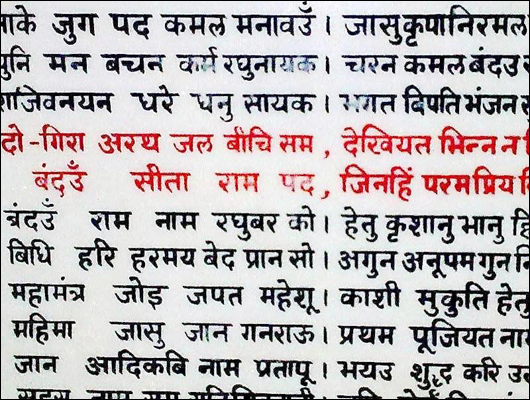 जुग पद कमल मनावउँ। जासु कृपा निरमल
मन बचन कर्म रघुनायक। चरन कमल बंदउ
धरे धनु सायक। भगत बिपति भंजन
दो-गिरा अरथ जल बीचि सम, देखियत भिन्न न
बंदउँ सीता राम पद, जिनहिं परम प्रिय
बंदउँ राम नाम रघुबर को। हेतु कृशानु भानु
बिधि हरि हरमय बेद प्रान सो। अगुन अनूपम गुन
महामंत्र जोइ जपत महेशू। काशी मुकुति हेतु
महिमा जासु जान गनराऊ। प्रथम पूजियत
जान आदिकबि नाम प्रतापू। भयउ शुद्ध करि